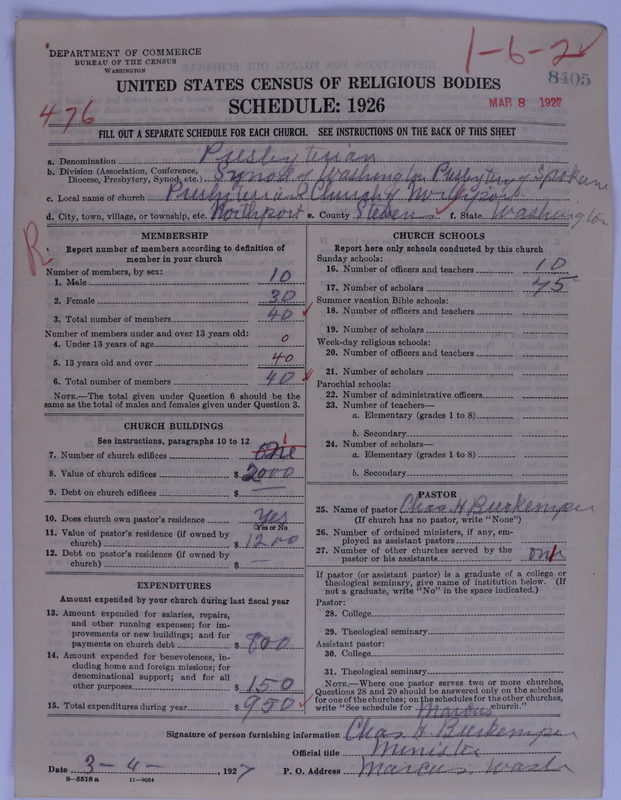 DEPARTMENT OF COMMERCE
BUREAU OF THE CENSUS
WASHINGTON
1-6-2
8405
UNITED STATES CENSUS OF RELIGIOUS BODIES
SCHEDULE: 1926
MAR 8 1927
476
FILL OUT A SEPARATE SCHEDULE FOR EACH CHURCH. SEE INSTRUCTIONS ON THE BACK OF THIS SHEET
a. Denomination Presbyterian
b. Division (Association, Conference, Diocese, Presbytery, Synod, etc.) Synod of Washington Presbytery of Spokane
c. Local name of church Presbyterian Church of Northport
d. City, town, village, or township, etc. Northport e. County Stevens f. State Washington
R
MEMBERSHIP
Report number of members according to definition of
member in your church
Number of members, by sex:
1. Male 10
2. Female 30
3. Total number of members 40
Number of members under and over 13 years old:
4. Under 13 years of age 0
5. 13 years old and over 40
6. Total number of members 40
NOTE.—The total given under Question 6 should be
same as the total of males and females given under Question 3.
CHURCH BUILDINGS
See instructions, paragraphs 10 to 12
7. Number of church edifices one 1
8. Value of church edifices $ 2000
9. Debt on church edifices $ —
10. Does church own pastor's residence Yes
Yes or No
11. Value of pastor's residence (if owned by
church) $ 1200
12. Debt on pastor's residence (if owned by
church) $ —
EXPENDITURES
Amount expended by your church during last fiscal year
13. Amount expended for salaries, repairs,
and other running expenses; for im-
provements or new buildings; and for
payments on church debt $ 800
14. Amount expended for benevolences, in-
cluding home and foreign missions; for
denominational support; and for all
other purposes $ 150
15. Total expenditures during year $ 950
CHURCH SCHOOLS
Report here only schools conducted by this church
Sunday schools:
16. Number of officers and teachers 10
17. Number of scholars 75
Summer vacation Bible schools:
18. Number of officers and teachers
19. Number of scholars
Week-day religious schools:
20. Number of officers and teachers
21. Number of scholars
Parochial schools:
22. Number of administrative officers
23. Number of teachers—
a. Elementary (grades 1 to 8)
b. Secondary
24. Number of scholars—
a. Elementary (grades 1 to 8)
b. Secondary
PASTOR
25. Name of pastor Chas H Burkemper
(If church has no pastor, write "None")
26. Number of ordained ministers, if any, em-
ployed as assistant pastors
27. Number of other churches served by the
pastor or his assistants
If pastor (or assistant pastor) is a graduate of a college or
theological seminary, give name of institution below. (If
not a graduate, write "No" in the space indicated.)
Pastor:
28. College
29. Theological seminary
Assistant pastor:
30. College
31. Theological seminary
NOTE.—Where one pastor serves two or more churches,
Questions 28 and 29 should be answered only on the schedule
for one of the churches; on the schedules for the other churches,
write "See schedule for Marcus church."
Signature of person furnishing information Chas H. Burkemper
Official title Minister
Date 3-4-, 1927 P. O. Address Marcus. Wash
8-5518 a 11-9034